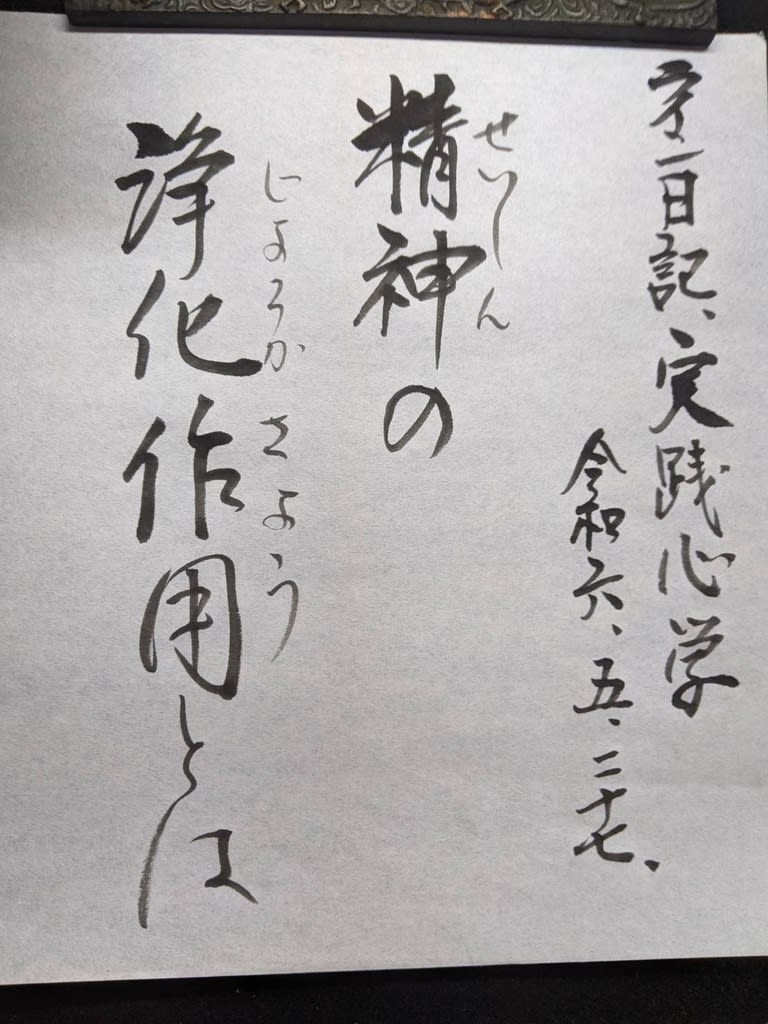 宇一日記、実践心学
令和六、五、二十七、
せいしん
精神の
じようか さよう
浄化作用とは